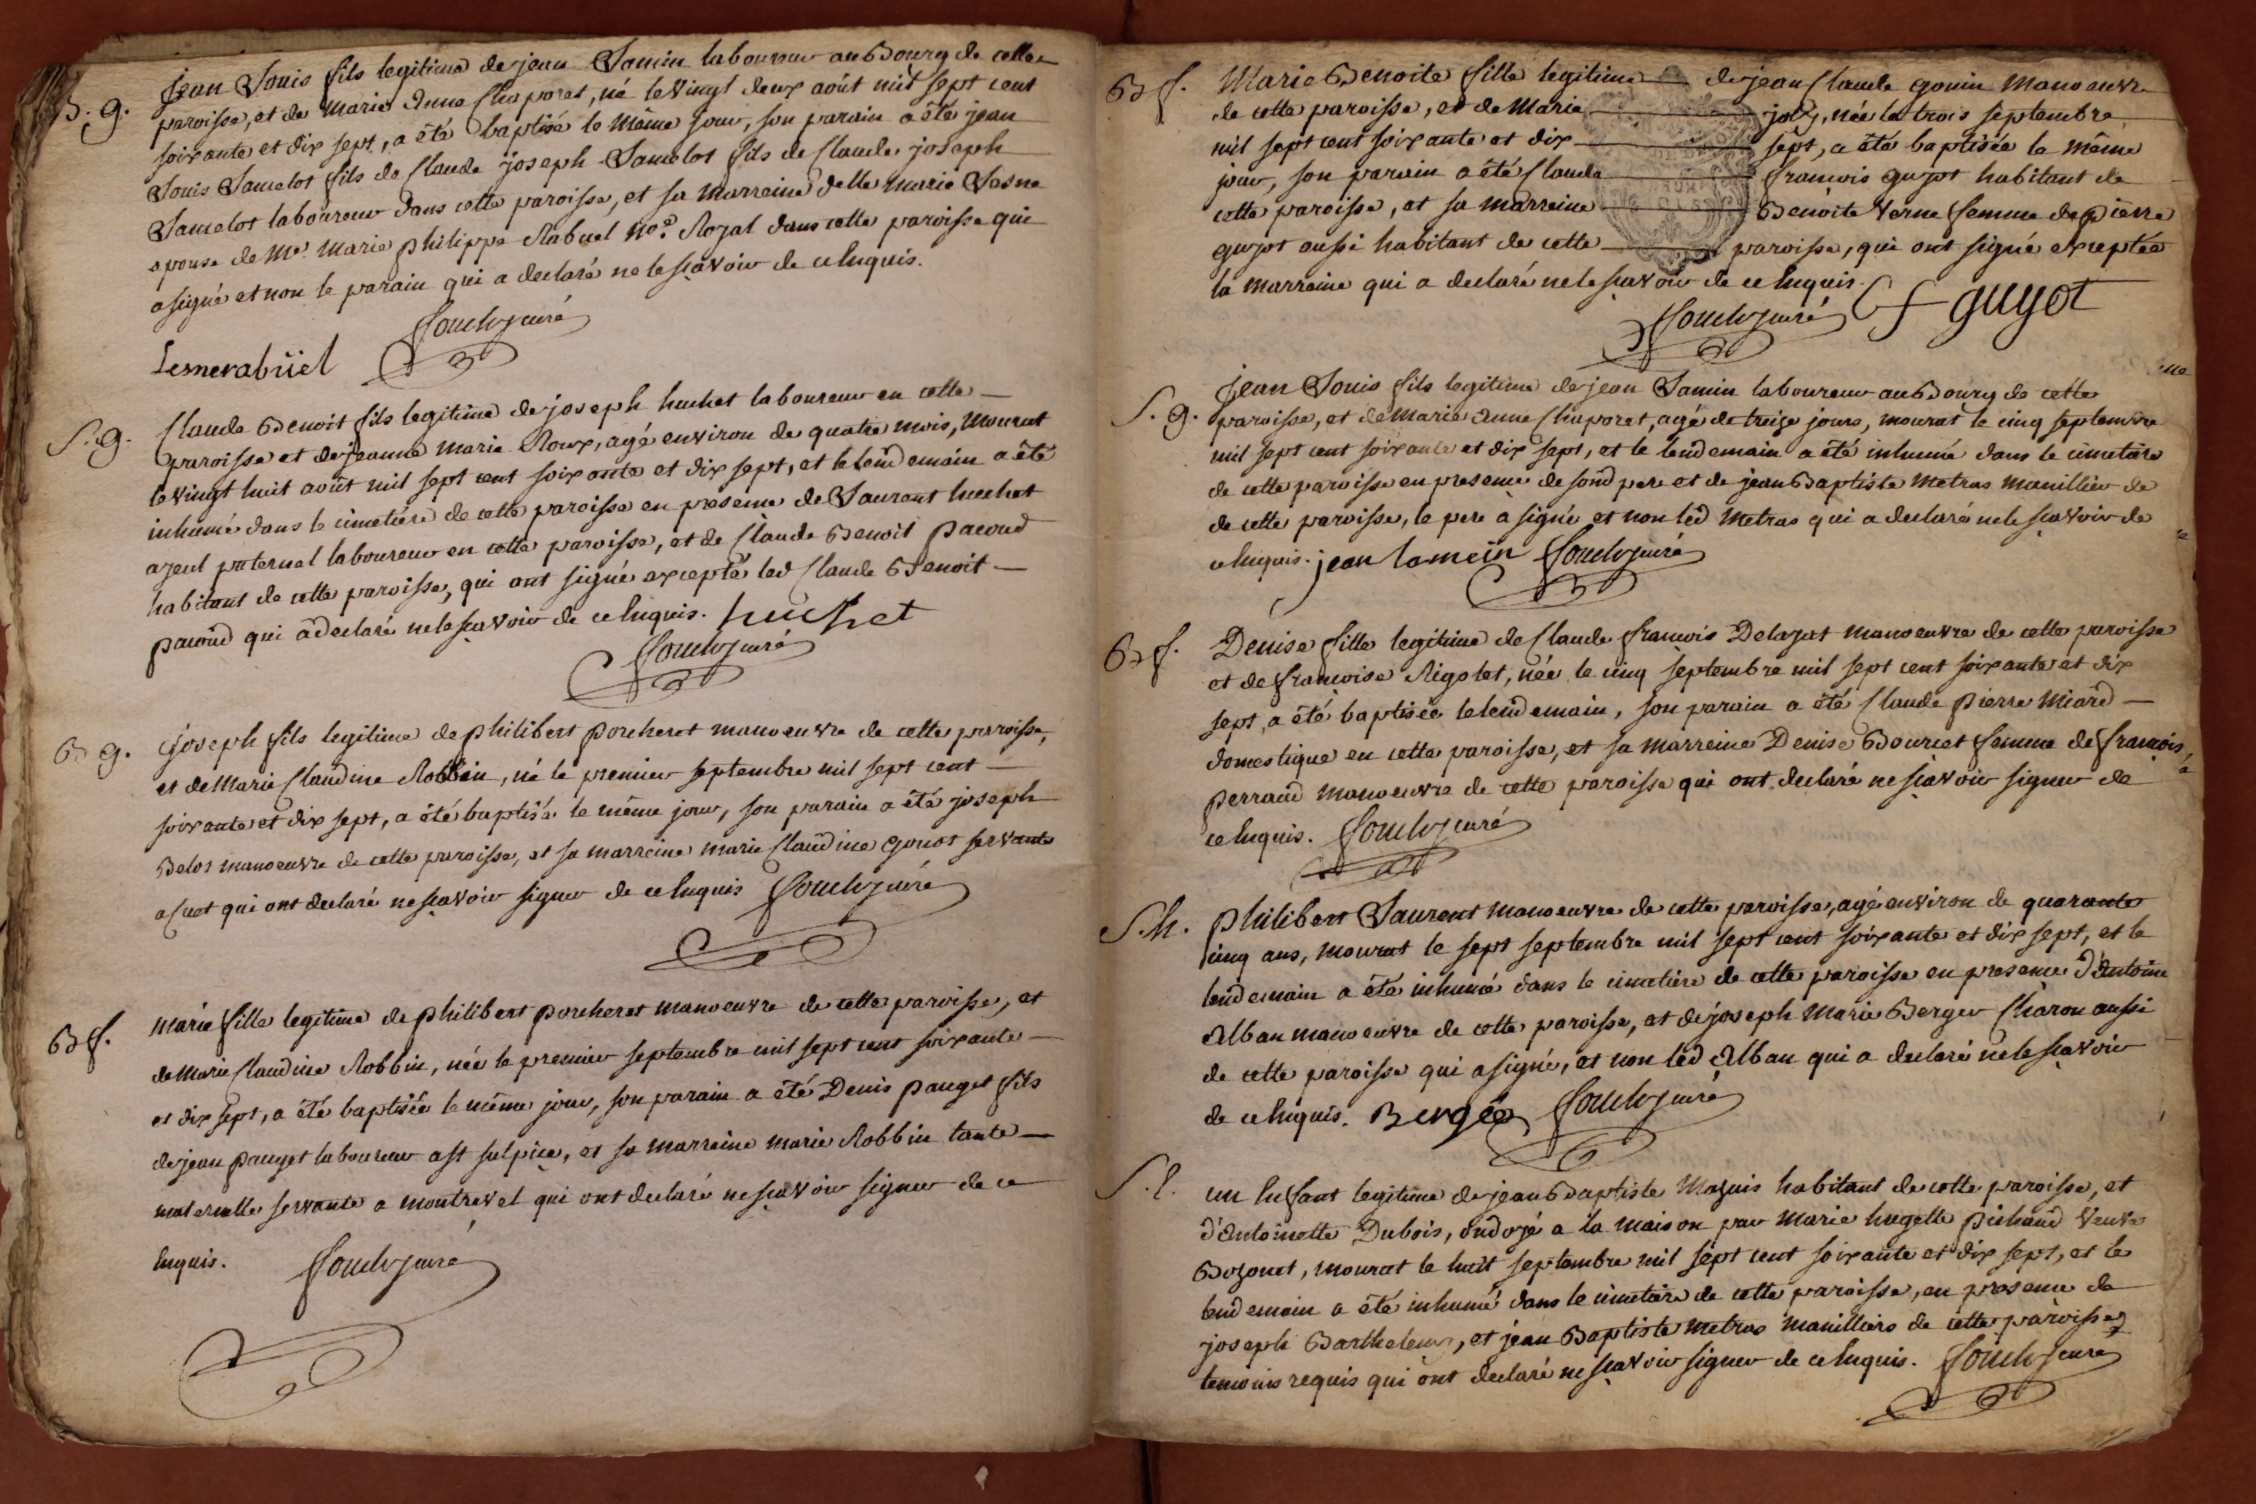 B. g.
Jean Louis fils legitime de jean Lamin laboureur au Bourg de cette
paroisse, et de Marie Anne Chaporet, né le vingt deux août mil sept cent
soixante et dix sept, a été baptisé le même jour, son parain a été jean
Louis Lamelot fils de Claude joseph Lamelot fils de Claude joseph
Lamelot laboureur dans cette paroisse, et sa marreine delle marie Lesne
epouse de Me. Marie philippe Rabuel no.e Royal dans cette paroisse qui
a signé et non le parain qui a declaré ne le sçavoir de ce Enquis.
Lesnerabüel
curé
S. g.
Claude Benoit fils legitime de joseph huchet laboureur en cette
paroisse et de jeanne Marie Roux, agé environ de quatre mois, mourut
le vingt huit août mil sept cent soixante et dix sept, et le lendemain a été
inhumé dans le cimetière de cette paroisse en presence de Laurent huchet
ayeul paternel laboureur en cette paroisse, et de Claude Benoit pacoud
habitant de cette paroisse, qui ont signé excepté led Claude Benoit
pacoud qui a declaré ne le sçavoir de ce Enquis. huchet
curé
B g.
joseph fils legitime de philibert porcheret manoeuvre de cette paroisse,
et de Marie Claudine Robbin, né le premier septembre mil sept cent
soixante et dix sept, a été baptisé le même jour, son parain a été joseph
Belos manoeuvre de cette paroisse, et sa marreine marie Claudine gonot servante
a Cuet qui ont declaré ne sçavoir signer de ce Enquis curé
B f.
Marie fille legitime de philibert porcheret manoeuvre de cette paroisse, et
de Marie Claudine Robbin, née le premier septembre mil sept cent soixante
et dix sept, a été baptisée le même jour, son parain a été Denis pauget fils
de jean pauget laboureur a St sulpice, et sa marreine marie Robbin tante
maternelle servante a montrevel qui ont declaré ne sçavoir signer de ce
Enquis. curé
B f.
Marie Benoite fille legitime de jean Claude gonin Manoeuvre
de cette paroisse, et de Marie joly, née le trois septembre
mil sept cent soixante et dix sept, a été baptisée le même
jour, son parain a été Claude francois guyot habitant de
cette paroisse, et sa marreine Benoite Verne femme de pierre
guyot aussi habitant de cette paroisse, qui ont signé exceptée
la marreine qui a declaré ne le sçavoir de ce Enquis.
curé Cf guyot
S. g.
Jean Louis fils legitime de jean Lamin laboureur au Bourg de cette
paroisse, et de Marie Anne Chaporet, agé de treize jours, mourut le cinq septembre
mil sept cent soixante et dix sept, et le lendemain a été inhumé dans le cimetière
de cette paroisse en presence de sond pere et de jean Baptiste Metras Manillier de
de cette paroisse, le pere a signé et non led Metras qui a declaré ne le sçavoir de
ce Enquis. jean lamein curé
B f.
Denise fille legitime de Claude francois Delayat manoeuvre de cette paroisse
et de francoise Rigolet, née le cinq septembre mil sept cent soixante et dix
sept, a été baptisée le lendemain, son parain a été Claude pierre Miard
domestique en cette paroisse, et sa marreine Denise Bourcet femme de francois
perraud manoeuvre de cette paroisse qui ont declaré ne sçavoir signer de
ce Enquis. curé
S. h.
philibert Laurent manoeuvre de cette paroisse, agé environ de quarante
cinq ans, mourut le sept septembre mil sept cent soixante et dix sept, et le
lendemain a été inhumé dans le cimetière de cette paroisse en presence d'Antoine
Alban manoeuvre de cette paroisse, et de joseph Marie Berger Charon aussi
de cette paroisse qui a signé, et non led Alban qui a declaré ne le sçavoir
de ce Enquis. Bergér curé
S. l.
un Enfant legitime de jean Baptiste Mazuis habitant de cette paroisse, et
d'Antoinette Dubois, ondoyé a la maison par Marie hugette pichaud veuve
Bozonet, mourut le huit septembre mil sept cent soixante et dix sept, et le
lendemain a été inhumé dans le cimetière de cette paroisse, en presence de
joseph Barthelemy, et jean Baptiste Metras manilliers de cette paroisse
temoins requis qui ont declaré ne sçavoir signer de ce Enquis. curé